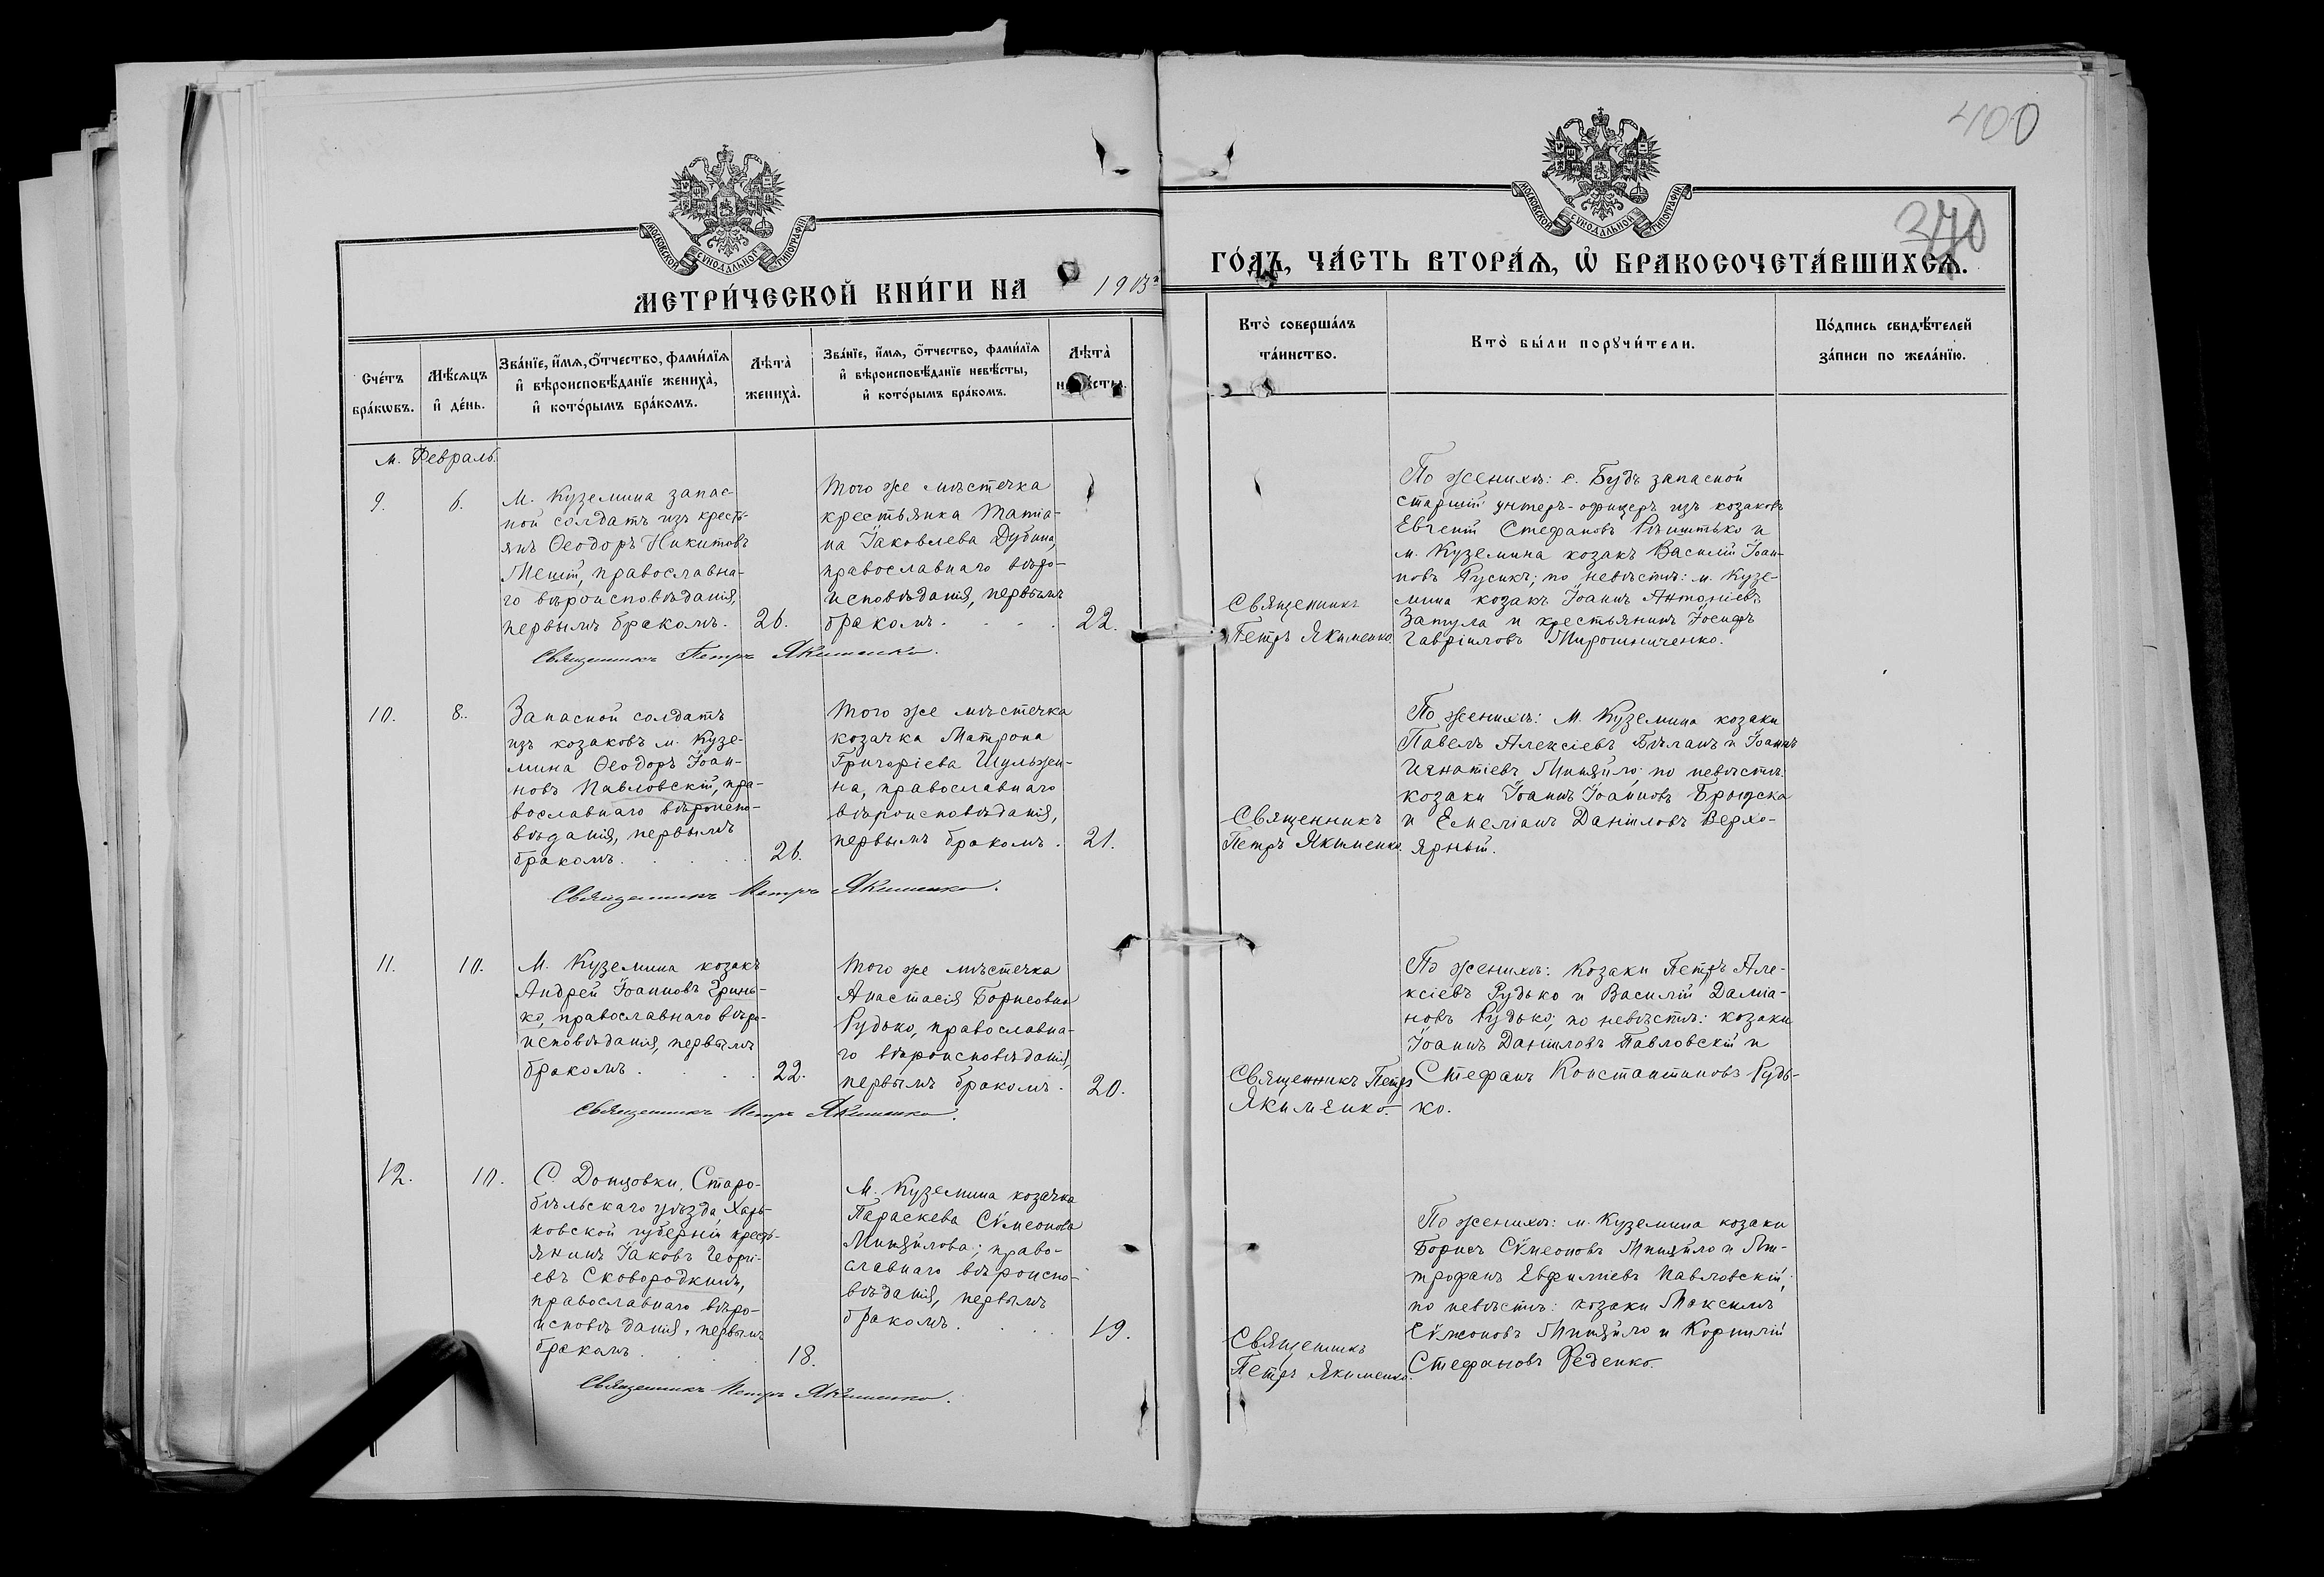 400
370
МОСКОВСКОЙ СѴНОДАЛЬНОЙ ТИПОГРАФІИ
МОСКОВСКОЙ СѴНОДАЛЬНОЙ ТИПОГРАФІИ
МЕТРИ́ЧЕСКОЙ КНИ́ГИ НА 1903й
ГО́ДЪ, ЧА́СТЬ ВТОРА́Ѧ, Ѡ҆ БРАКОСОЧЕТА́ВШИХСѦ.
Сче́тъ бра́кѡвъ.
Мѣ́сѧцъ и҆ де́нь.
Зва́нїе, и҆́мѧ, ѻ҆́тчество, фами́лїѧ
и҆ вѣроисповѣ́данїе жениха̀,
и҆ кото́рымъ бра́комъ.
Лѣта̀ жениха̀.
Зва́нїе, и҆́мѧ, ѻ҆́тчество, фами́лїѧ
и҆ вѣроисповѣ́данїе невѣ́сты,
и҆ кото́рымъ бра́комъ.
Лѣта̀ невѣ́сты.
Кто̀ соверша́лъ
та́инство.
Кто̀ бы́ли порꙋчи́тели.
По́дпись свидѣ́телей
за́писи по жела́нїю.
м. Февраль.
9.
6.
М. Куземина запас-
ной солдатъ изъ кресть-
янъ Ѳеодоръ Никитовъ
православна-
го вѣроисповѣданія,
первымъ бракомъ.
26.
Того же мѣстечка
крестьянка Татіа-
на Іаковлева Дубина,
православнаго вѣро-
исповѣданія, первымъ
бракомъ.
22.
Священникъ Петръ Якименко.
Священникъ
Петръ Якименко.
По женихѣ: с. Будъ запасной
старшій унтеръ-офицеръ изъ козаковъ
Евгеній Стефановъ и
м. Куземина козакъ Василій Іоан-
новъ Русикъ; по невѣстѣ: м. Кузе-
мина козакъ Іоаннъ Антоніевъ
Затула и крестьянинъ Іосифъ
Гавріиловъ Мирошниченко.
10.
8.
Запасной солдатъ
изъ козаковъ м. Кузе-
мина Ѳеодоръ Іоан-
новъ Павловскій, пра-
вославнаго вѣроиспо-
вѣданія, первымъ
бракомъ.
26.
Того же мѣстечка
козачка Матрона
Григоріева Шульжен-
на, православнаго
вѣроисповѣданія,
первымъ бракомъ.
21.
Священникъ Петръ Якименко.
Священникъ
Петръ Якименко.
По женихѣ: М. Куземина козаки
Павелъ Алексіевъ Бѣланъ и Іоаннъ
Игнатіевъ Минзйло; по невѣстѣ:
козаки Іоаннъ Іоанновъ
и Емеліанъ Даніиловъ Верхо-
ярный.
11.
10.
М. Куземина козакъ
Андрей Іоанновъ Гринь-
ко, православнаго вѣро-
исповѣданія, первымъ
бракомъ.
22.
Того же мѣстечка
Анастасія Борисовна
Рудько, православна-
го вѣроисповѣданія,
первымъ бракомъ.
20.
Священникъ Петръ Якименко.
Священникъ Петръ
Якименко.
По женихѣ: Козаки Петръ Але-
ксіевъ Рудько и Василій Даміа-
новъ Рудько; по невѣстѣ: козаки
Іоаннъ Даніиловъ Павловскій и
Стефанъ Константиновъ Рудь-
ко.
12.
10.
С. Донцовки, Старо-
бѣльскаго уѣзда, Харь-
ковской губерніи кресть-
янинъ Іаковъ Георгі-
евъ Сковородкинъ,
православнаго вѣро-
исповѣданія, первымъ
бракомъ.
18.
М. Куземина козачка
Параскева Сѵмеонова
Минзйлова; право-
славнаго вѣроиспо-
вѣданія, первымъ
бракомъ.
19.
Священникъ Петръ Якименко.
Священникъ
Петръ Якименко.
По женихѣ: м. Куземина козаки
Борисъ Сѵмеоновъ Минзйло и Ми-
трофанъ Евфиміевъ Павловскій;
по невѣстѣ: козаки Максимъ
Сѵмеоновъ Минзйло и Корнилій
Стефановъ Феденко.